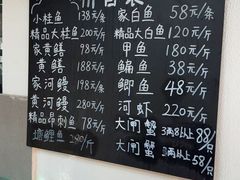 小桂鱼 138元/条
精品大桂鱼 200元/斤
家黄鳝 98元/斤
黄鳝 188元/斤
家河鳗 98元/斤
黄河鳗 280元/斤
精品昂刺鱼 78元/斤
家白鱼 58元/条
精品大白鱼 120元/斤
甲鱼 180元/斤
鳊鱼 38元/斤
鲫鱼 48元/斤
河虾 220元/斤
大闸蟹 3两8以上 88/只
大闸蟹 3两以上 58/只